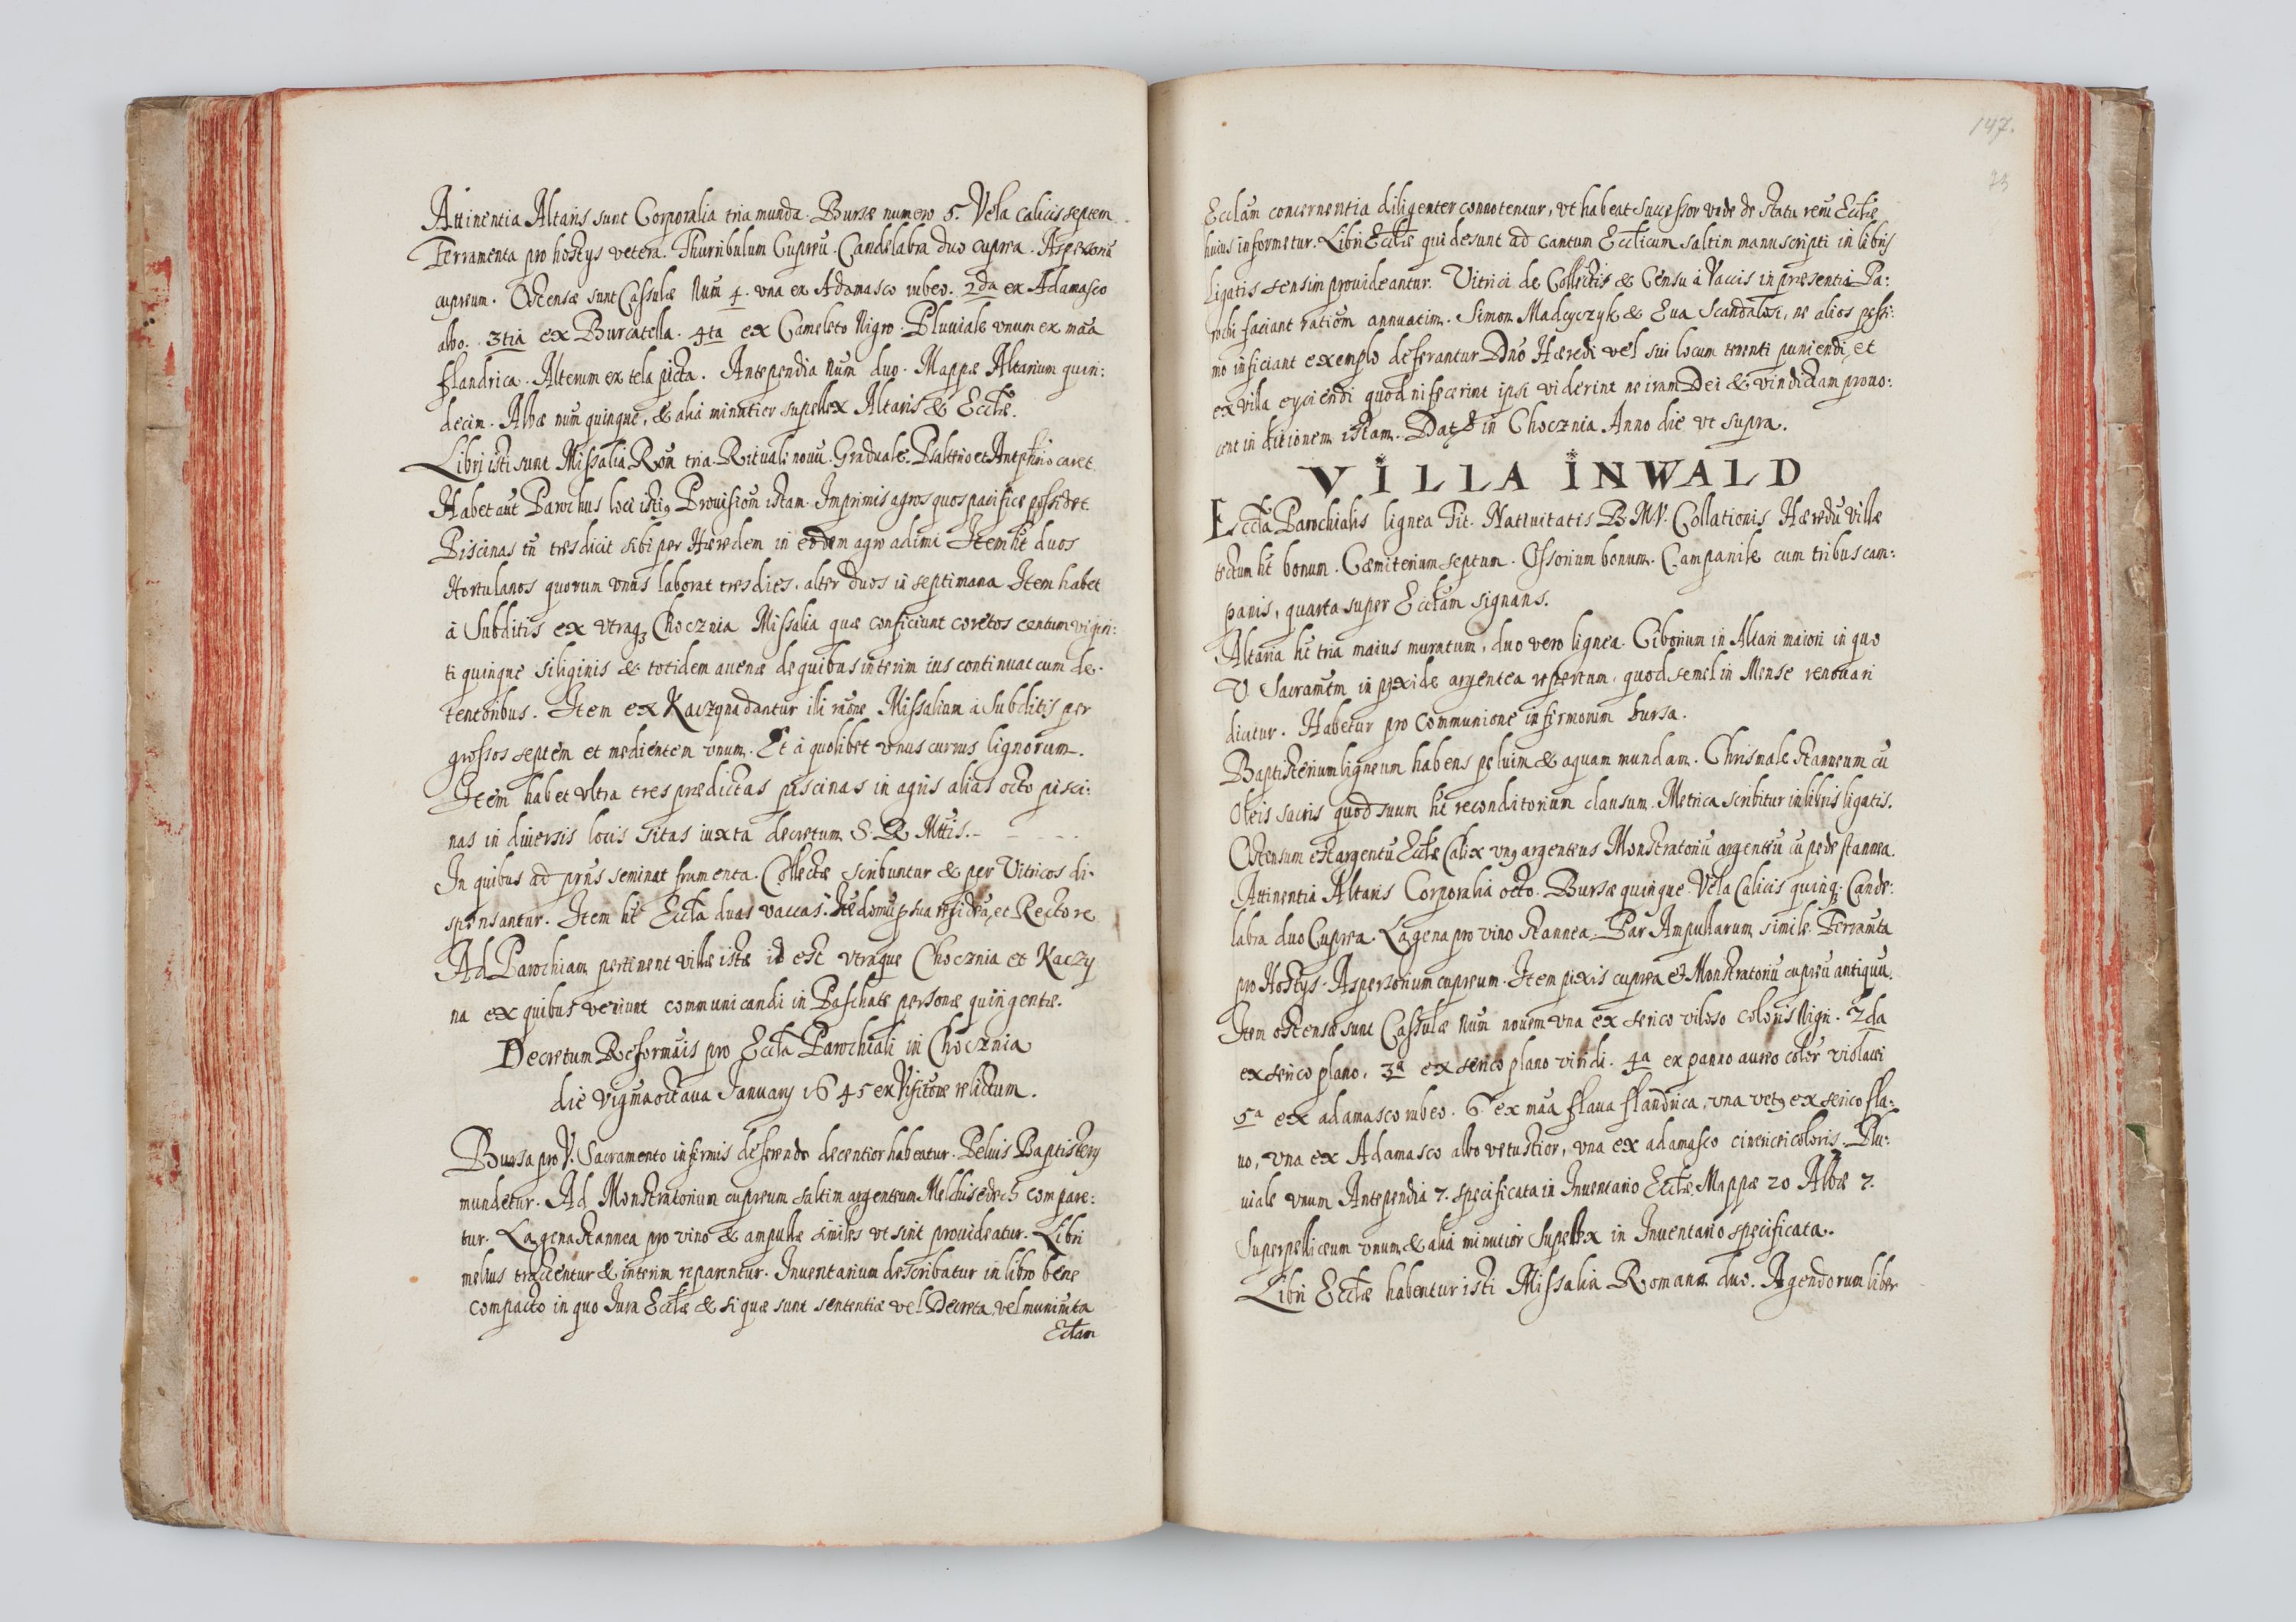 Attinentia Altaris sunt Corporalia tria munda. Bursæ numero 5. Vela calicis septem
Ferramenta pro hostys vetera. Thuribulum Cupreũ. Candelabra duo cuprea. Aspersoriũ
cupreum. Ostensæ sunt Casulæ Num̃ 4. vna ex Adamasco rubeo. 2da ex Adamasco
albo. 3tia ex Burcatella. 4ta ex Cameloto Nigro. Pluuiale vnum ex mãa
flandrica. Alterum ex tela picta. Antependia Num̃ duo. Mappæ Altarium quin:
decim. Albæ num̃ quinque, & alia minutior supellex Altaris & Eccłæ.
Libri isti sunt Missalia Rom̃ tria. Rituali nouũ. Graduale. Psalterio et Antiphrio caret.
Habet aut̃ Parochus loci isti9 Prouisiom̃ istam. Imprimis agros quos pacifice possidet.
Piscinas tñ tres dicit sibi per Hæredem in eodem agro adimi Item ht̃ duos
Hortulanos quorum vnus laborat tres dies, alter duos iñ septimana Item habet
à Subditis ex vtraqꝫ Chocznia Missalia quæ conficiunt coretos centum vigin:
ti quinque siliginis & totidem auenæ de quibus interim ius continuat cum de-
tentoribus. Item ex Kaczyna dantur illi rãone Missalium à Subditis per
grossos septem et medientem vnum. Et à quolibet vnus currus lignorum.
Item habet vltra tres prædictas piscinas in agris alias octo pisci:
nas in diuersis locis sitas iuxta decretum S. R. Mttis. - - - -
In quibus ad prñs seminat frumenta. Collectæ scribuntur & per Vitricos di-
spensantur. Item ht̃ Eccła duas vaccas. Itẽ domũ p sua resideñ, et Rectore
Ad Parochiam pertinent villæ istæ id est vtraque Chocznia et Kaczy
na ex quibus veniunt communicandi in Paschate personæ quingentæ.
Decretum Reformãis pro Eccła Parochiali in Chocznia
die Vigm̃a octaua January 1645 ex Visitõne relictum.
Bursa pro V. Sacramento infirmis deferendo decentior habeatur. Peluis Baptistery
mundetur. Ad Monstratorium cupreum saltim argenteum Melchisedech compare:
tur. Lagena stannea pro vino & ampullæ similes vt sint prouideatur. Libri
melius tractentur & interim reparentur. Inuentarium describatur in libro bene
compacto in quo Iura Eccłæ & si quæ sunt sententiæ vel Decreta, vel munim̃ta
Ecłam
147.
73
Eccłam concernentia diligenter connotentur, vt habeat successor vnde de statu rerũ Eccłæ
huius informetur. Libri Eccłæ qui desunt ad cantum Eccłicum saltim manuscripti in libris
ligatis sensim prouideantur. Vitrici de Collectis & Censu à Vaccis in præsentia Pa:
rochi faciant ratiom̃ annuatim. Simon Madcyczyk & Eua Scandalosi, ne alios pessi:
mo inficiant exemplo deferantur Dño Hæredi vel sui locum tenenti puniendi, et
ex villa eyciendi quod ni fecerint ipsi viderint ne iram Dei & vindictam prouo:
cent in ditionem istam. Dat̃ in Chocznia Anno die vt supra.
VILLA INWALD
Eccła Parochialis lignea Tit. Natiuitatis B. M. V. Collationis Hæredũ Villæ
tectum ht̃ bonum. Cæmiterium septum. Ossorium bonum. Campanile cum tribus cam:
panis, quarta super Eccłam signans.
Altaria ht̃ tria maius muratum, duo vero lignea. Ciborium in Altari maiori in quo
V. Sacramẽm in pyxide argentea repertum, quod semel in Mense renouari
dicitur. Habetur pro Communione infirmorum bursa.
Baptisterium ligneum habens peluim & aquam mundam. Chrismale stanneum cũ
Oleis sacris quod suum ht̃ reconditorium clausum. Metrica scribitur in libris ligatis.
Ostensum est argentũ Eccłæ Calix vn9 argenteus Monstratoriũ argenteũ cũ pede stannea.
Attinentia Altaris Corporalia octo. Bursæ quinque. Vela Calicis quinqꝫ. Cande:
labra duo Cuprea. Lagena pro vino stannea. Par Ampullarum simile. Ferram̃ta
pro Hostys. Aspersorium cupreum. Item pixis cuprea et Monstratoriũ cupreũ antiquũ.
Item ostensæ sunt Casulæ Num̃ nouem vna ex serico viloso coloris Nigri. 2da
ex serico plano, 3a ex serico plano viridi. 4a ex panno aureo coloř violacei
5a ex adamasco rubeo. 6. ex mãa flaua flandrica, vna vet9 ex serico fla:
uo, vna ex Adamasco albo vetustior, vna ex adamasco cinericei coloris. Plu:
uiale vnum Antependia 7. specificata in Inuentario Eccłæ. Mappæ 20 Albæ 7.
Superpelliceum vnum & alia minutior Supellex in Inuentario specificata.
Libri Eccłæ habentur isti Missalia Romana duo. Agendorum liber